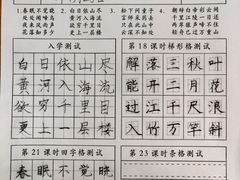 1.春眠不觉晓 2.白日依山尽 3.松下问童子 4.朝辞白帝彩云间
处处闻啼鸟 黄河入海流 言师采药去 千里江陵一日还
夜来风雨声 欲穷千里目 只在此山中 两岸猿声啼不住
花落知多少 更上一层楼 云深不知处 轻舟已过万重山
入学测试 第18课时梯形格测试
白日依山尽 解落三秋叶
黄河入海流 能开二月花
欲穷千里目 过江千尺浪
更上一层楼 入竹万竿斜
第21课时田字格测试 第23课时条格测试
春眠不觉晓